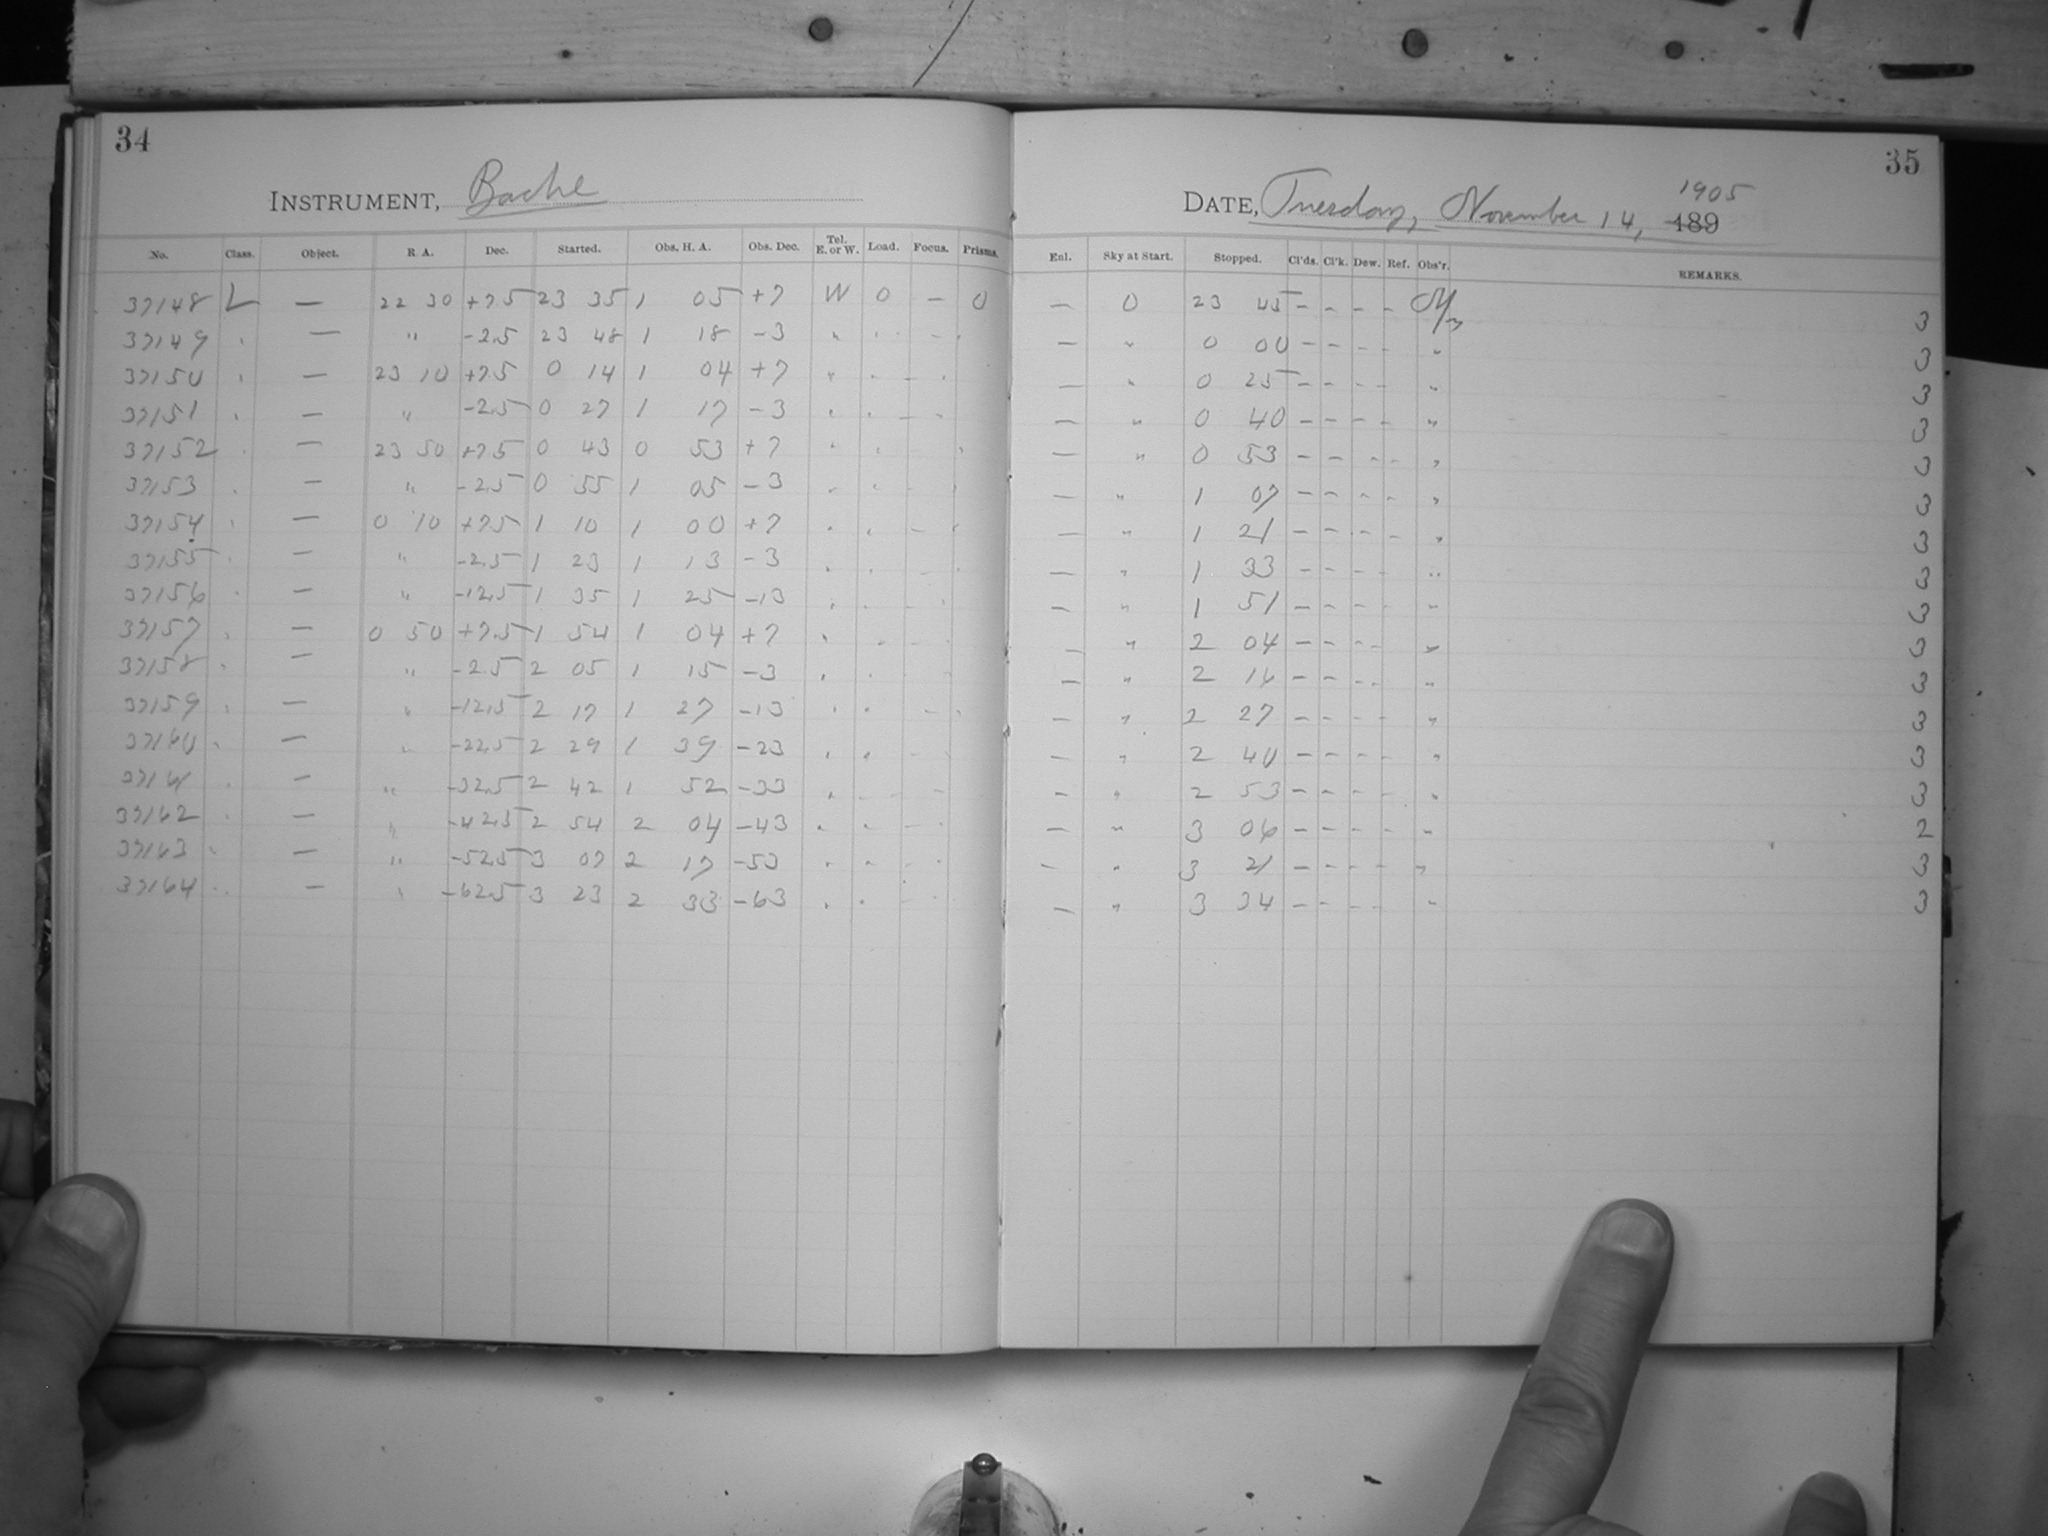 34
INSTRUMENT, Bache
No. Class. Object. R. A. Dec. Started. Obs. H. A. Obs. Dec. Tel. E. or W. Load. Focus. Prisms.
37148 L — 22 30 +7.5 23 35 1 05 +7 W 0 — 0
37149 " — " -2.5 23 48 1 18 -3 " " — "
37150 " — 23 10 +7.5 0 14 1 04 +7 " " — "
37151 " — " -2.5 0 27 1 17 -3 " " — "
37152 " — 23 50 +7.5 0 43 0 53 +7 " " — "
37153 " — " -2.5 0 55 1 05 -3 " " — "
37154 " — 0 10 +7.5 1 10 1 00 +7 " " — "
37155 " — " -2.5 1 23 1 13 -3 " " — "
37156 " — " -12.5 1 35 1 25 -13 " " — "
37157 " — 0 50 +7.5 1 54 1 04 +7 " " — "
37158 " — " -2.5 2 05 1 15 -3 " " — "
37159 " — " -12.5 2 17 1 27 -13 " " — "
37160 " — " -22.5 2 29 1 39 -23 " " — "
37161 " — " -32.5 2 42 1 52 -33 " " — "
37162 " — " -42.5 2 54 2 04 -43 " " — "
37163 " — " -52.5 3 07 2 17 -53 " " — "
37164 " — " -62.5 3 23 2 33 -63 " " — "
35
DATE, Tuesday, November 14, 189 1905
Enl. Sky at Start. Stopped. Cl'ds. Cl'k. Dew. Ref. Obs'r. REMARKS.
— 0 23 45 — — — — 3
— " 0 00 — — — — " 3
— " 0 25 — — — — " 3
— " 0 40 — — — — " 3
— " 0 53 — — — — " 3
— " 1 07 — — — — " 3
— " 1 21 — — — — " 3
— " 1 33 — — — — " 3
— " 1 51 — — — — " 3
— " 2 04 — — — — " 3
— " 2 16 — — — — " 3
— " 2 27 — — — — " 3
— " 2 40 — — — — " 3
— " 2 53 — — — — " 3
— " 3 06 — — — — " 2
— " 3 21 — — — — " 3
— " 3 34 — — — — " 3